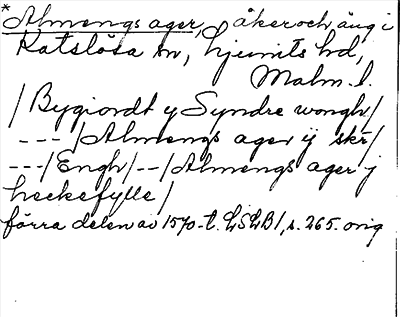 * Almengs ager, åker och äng i
Katslösa sn, Ljunits hd,
Malm. l.
/ Bygiordt y Syndre wongh /
--- / Almengs ager ij skr /
--- / Engh / -- / Almengs ager j
heckefylle /
förra delen av 1570-t. LSLB 1, s. 265. orig